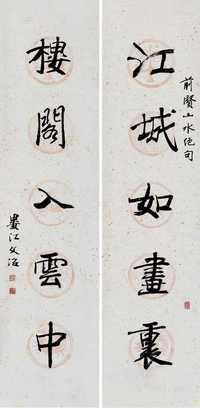 前賢山水絕句
江城如畫裏
樓閣入雲中
婁江文治